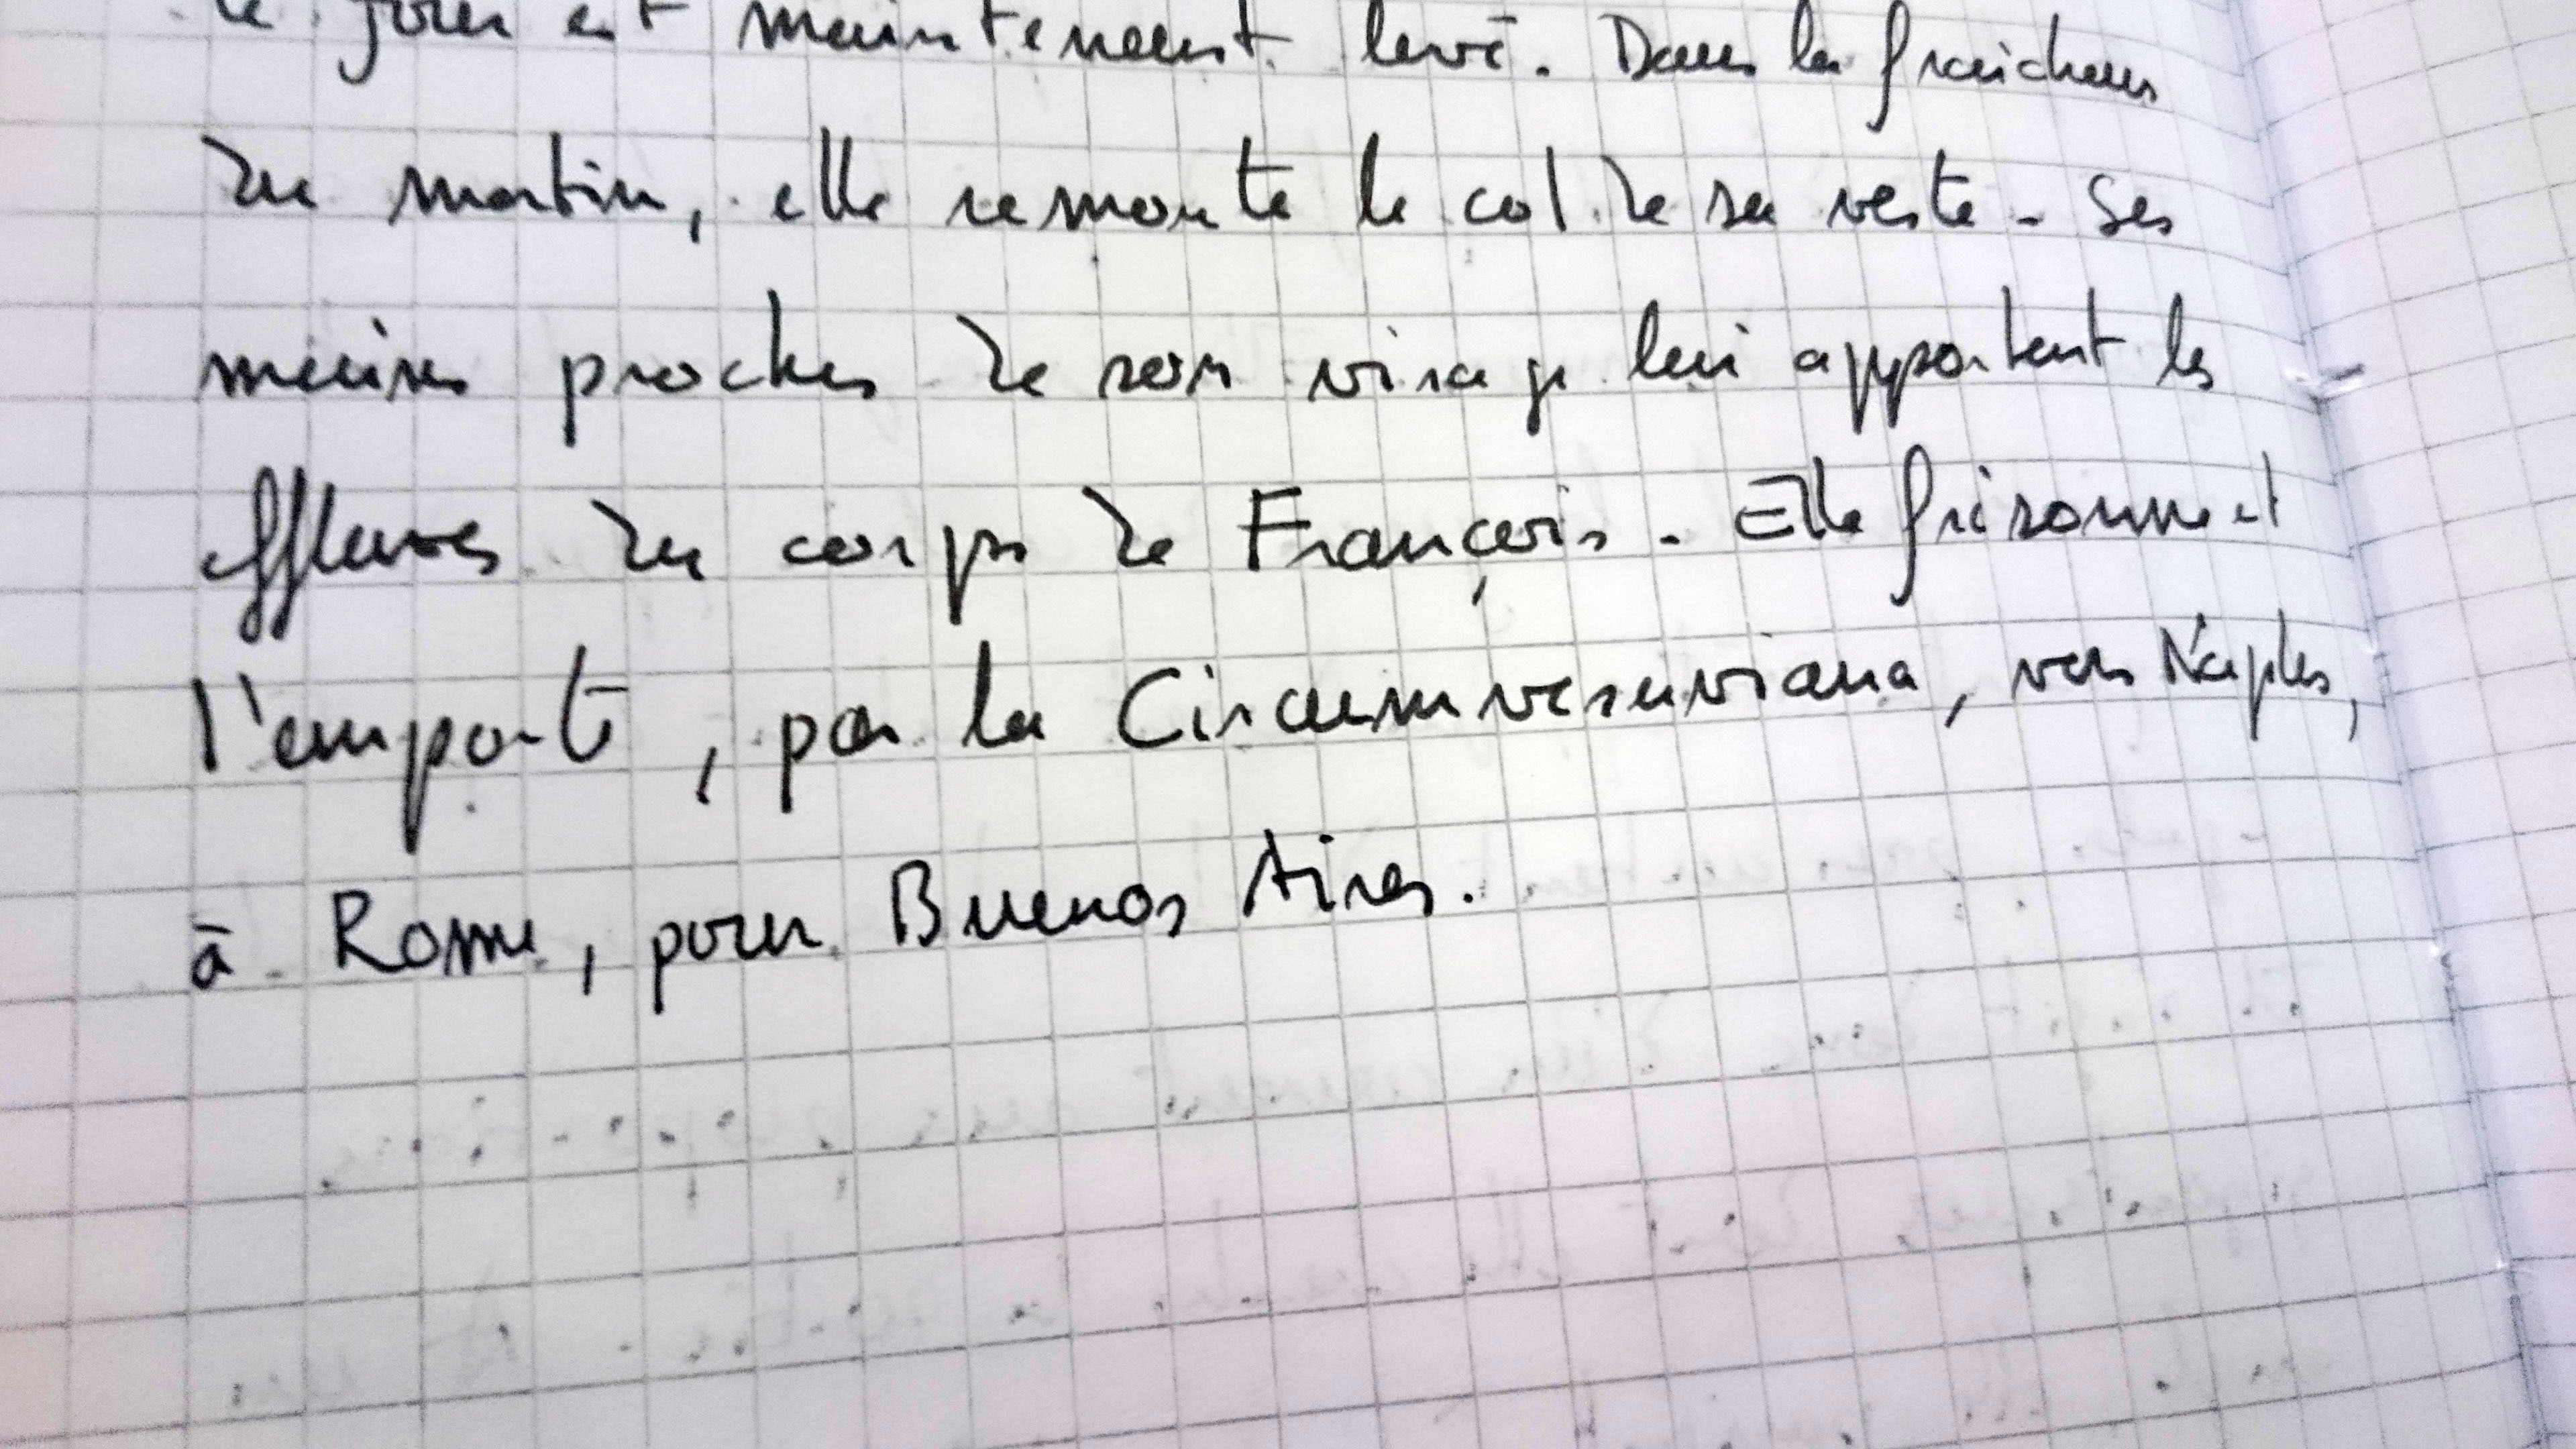 le jour est maintenant levé. Dans la fraicheur
du matin, elle remonte le col de sa veste. Ses
mains proches de son visage lui apportent les
effluves du corps de François. Elle frisonne et
l'emporte, par la Circumvesuviana, vers Naples,
à Rome, pour Buenos Aires.